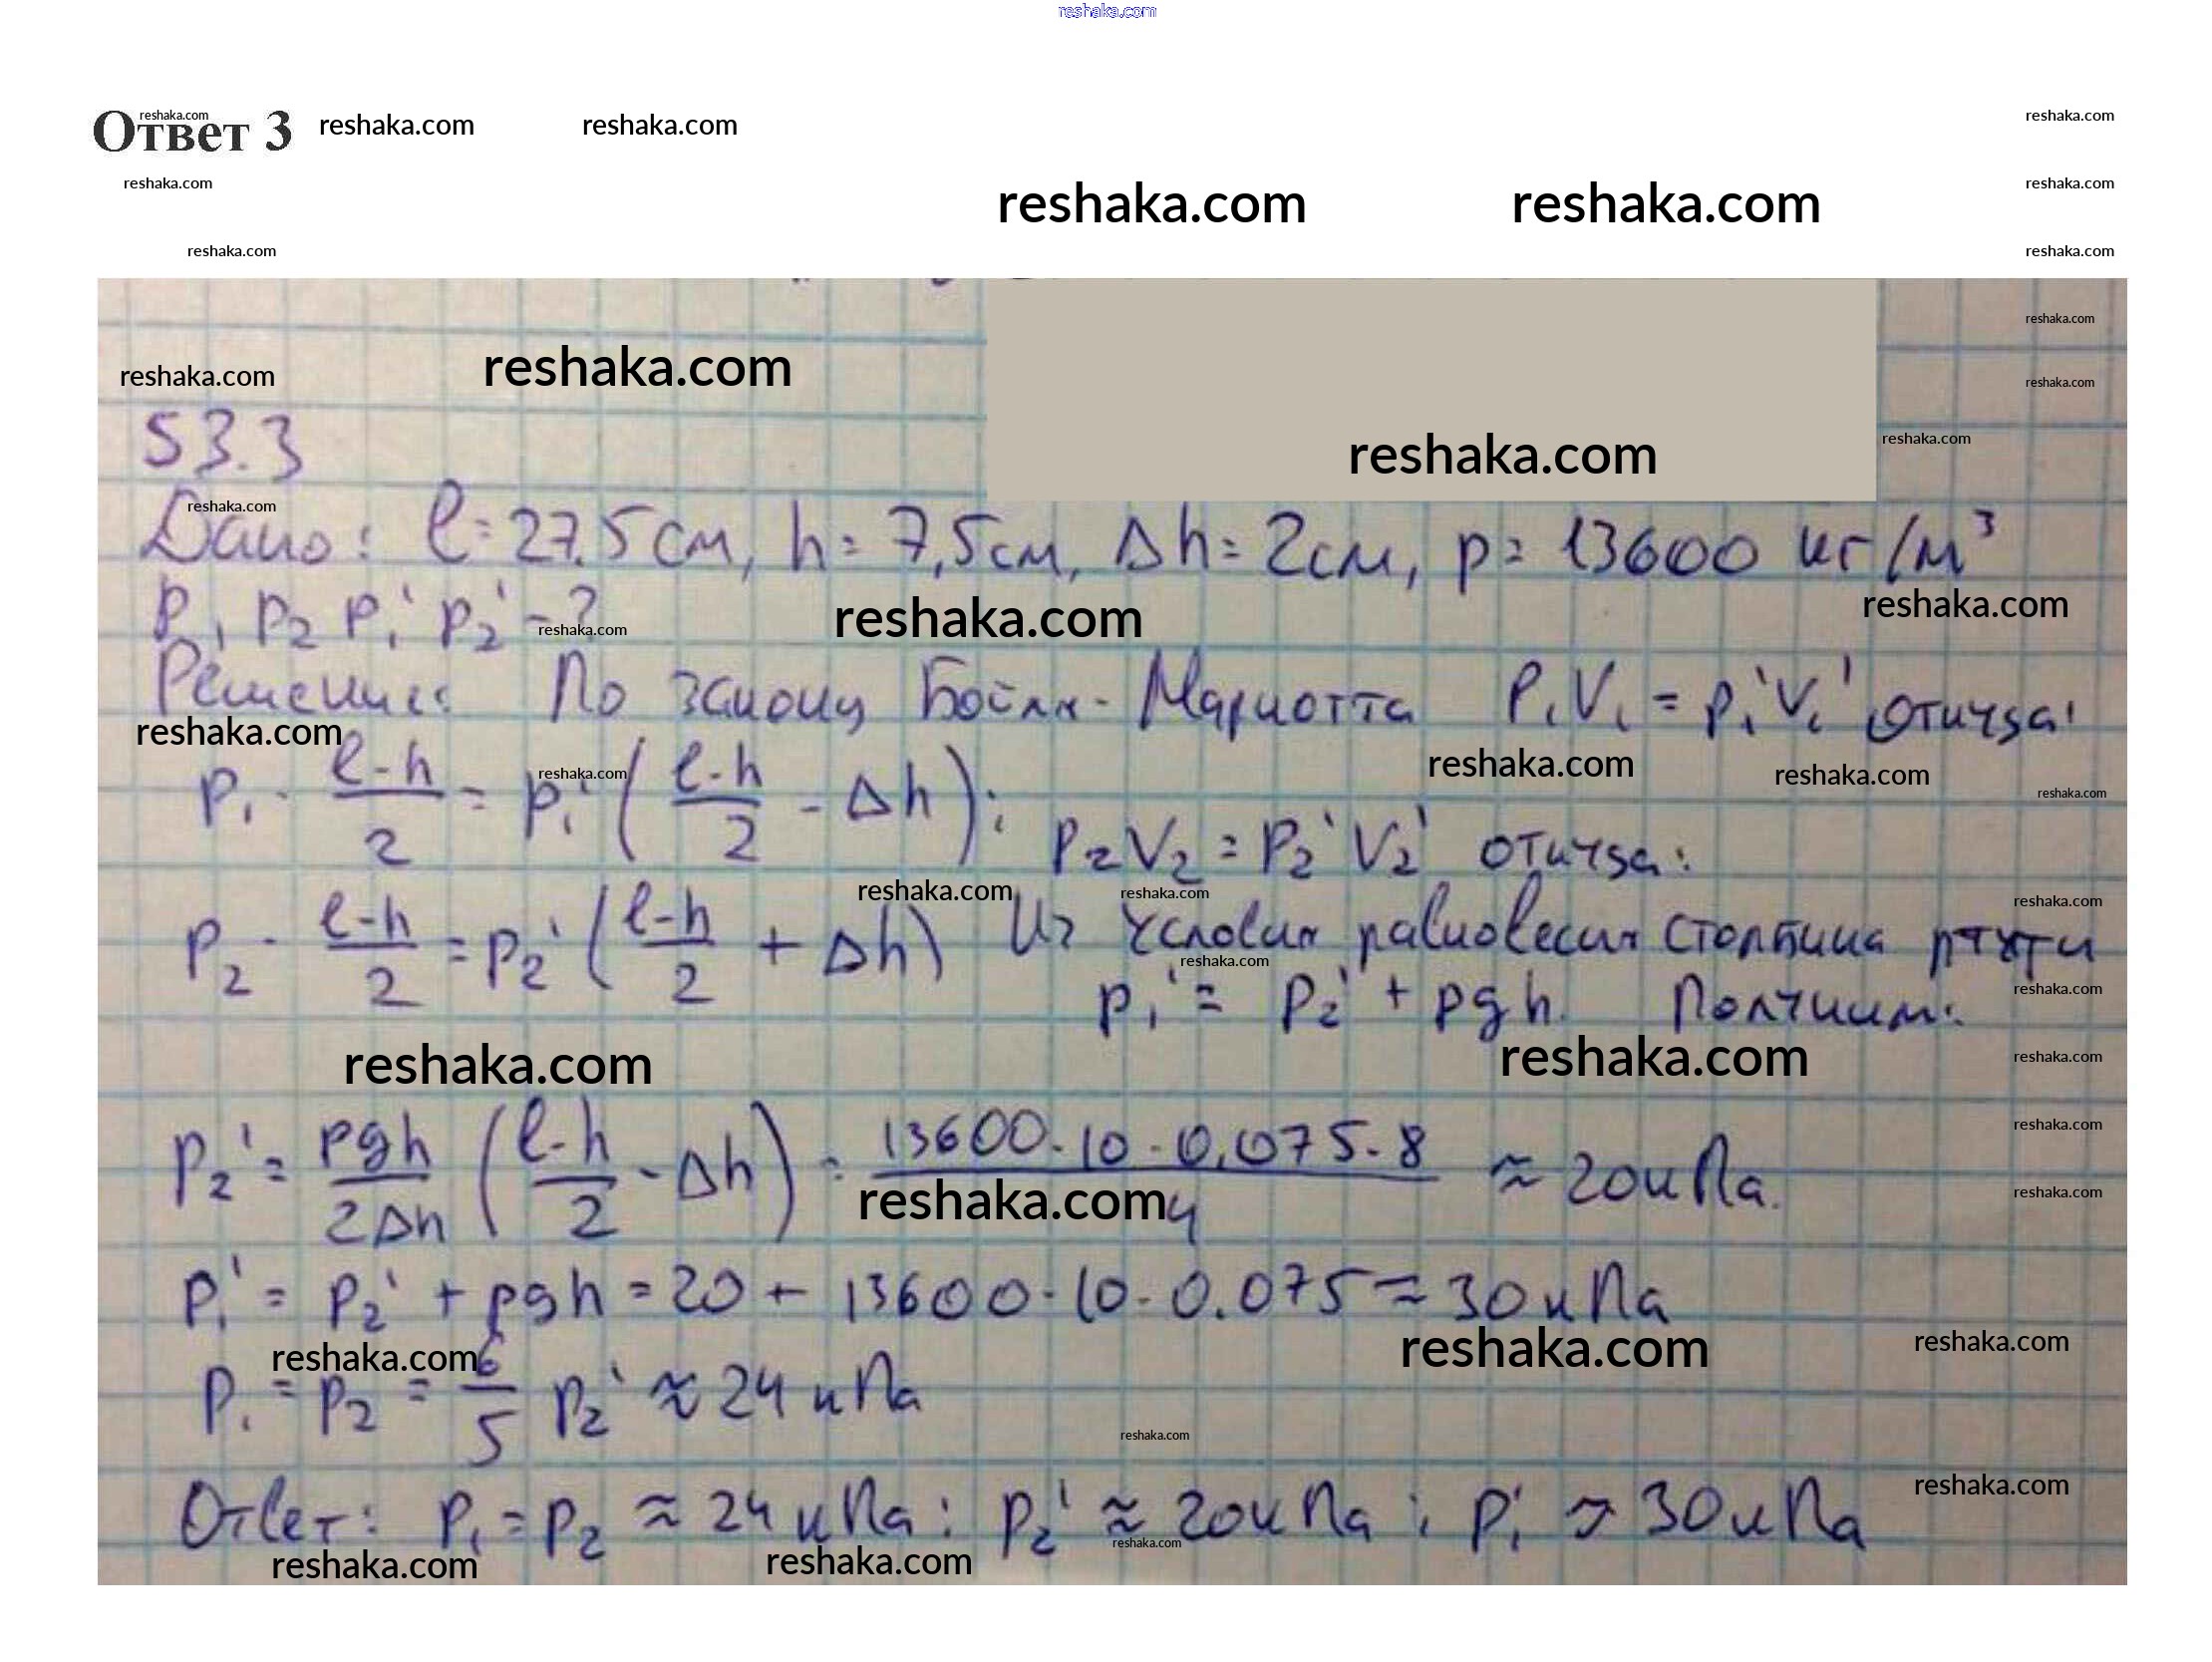 reshaka.com
Ответ 3 reshaka.com reshaka.com reshaka.com reshaka.com
reshaka.com reshaka.com reshaka.com reshaka.com
reshaka.com reshaka.com
reshaka.com
reshaka.com reshaka.com reshaka.com
reshaka.com reshaka.com
53.3
reshaka.com
Дано: l = 27.5 см, h = 7,5 см, Δh = 2 см, p = 13600 кг/м³
P₁ p₂ p₁' p₂' - ? reshaka.com reshaka.com reshaka.com
Решение: По закону Бойля-Мариотта P₁V₁ = p₁'V₁' откуда:
reshaka.com reshaka.com reshaka.com reshaka.com reshaka.com
p₁ · (l-h)/2 = p₁' ((l-h)/2 - Δh); P₂V₂ = P₂'V₂' откуда:
reshaka.com reshaka.com reshaka.com
p₂ · (l-h)/2 = p₂' ((l-h)/2 + Δh) Из условия равновесия столбика ртути
reshaka.com reshaka.com
p₁' = p₂' + pgh. Получим:
reshaka.com reshaka.com reshaka.com
reshaka.com
p₂' = pgh/2Δh ((l-h)/2 - Δh) = 13600·10·0,075·8/4 ≈ 20 кПа.
reshaka.com reshaka.com
p₁' = p₂' + pgh = 20 + 13600·10·0.075 ≈ 30 кПа
reshaka.com reshaka.com reshaka.com
p₁ = p₂ = 6/5 p₂' ≈ 24 кПа
reshaka.com
reshaka.com
Ответ: p₁ = p₂ ≈ 24 кПа; p₂' ≈ 20 кПа; p₁' ≈ 30 кПа
reshaka.com reshaka.com reshaka.com